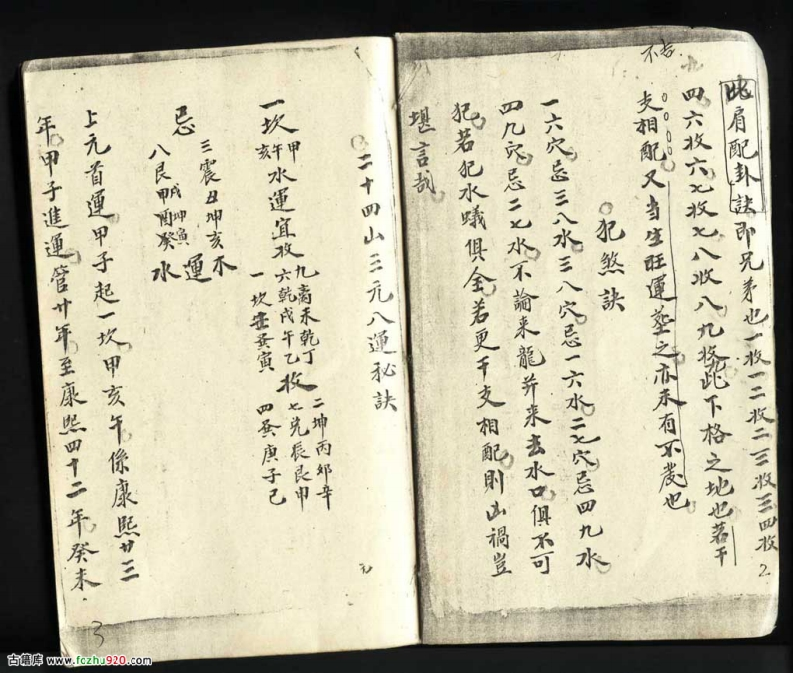 比肩配卦訣即兄弟也一收一二收二三收三四收
四六收六七收七八收八九收此下格之地也若干
支相配又当生旺運葬之亦未有不發也
犯煞訣
一六穴忌三八水三八穴忌一六水二七穴忌四九水
四九穴忌二七水不論来龍并来去水口俱不可
犯若犯水蟻俱全若更干支相配則凶禍豈
堪言哉
2
二十四山三元八運秘訣
一坎甲午亥水運宜收
九离未乾丁
六乾戌午乙
一坎壬巽寅
收
二坤丙夘辛
七兑辰艮甲
四巽庚子己
忌
三震丑坤亥水
八艮甲酉癸
戌坤寅
運
水
上元首運甲子起一坎甲亥午係康熙廿三
年甲子進運管廿年至康熙四十二年癸未
3
古籍库 www.fczhu920.com